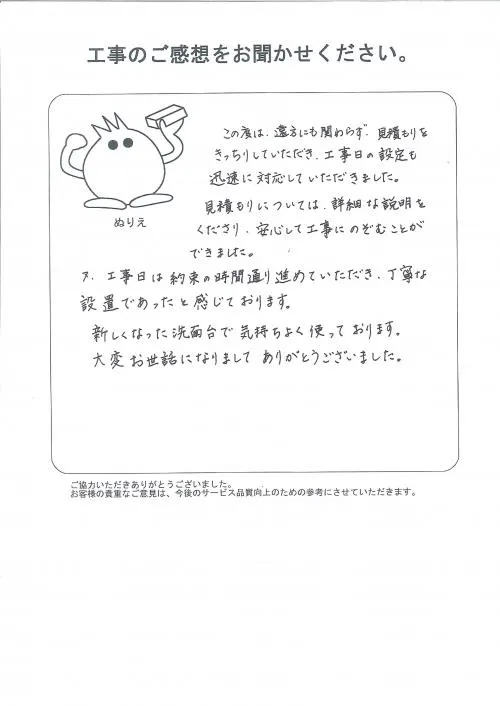 工事のご感想をお聞かせください。
ぬりえ
この度は、遠方にも関わらず、見積もりを
きっちりしていただき、工事日の設定も
迅速に対応していただきました。
見積もりについては、詳細な説明を
くださり、安心して工事にのぞむことが
できました。
又、工事日は約束の時間通り進めていただき、丁寧な
設置であったと感じております。
新しくなった洗面台で気持ちよく使っております。
大変お世話になりまして ありがとうございました。
ご協力いただきありがとうございました。
お客様の貴重なご意見は、今後のサービス品質向上のための参考にさせていただきます。